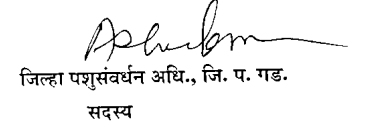 जिल्हा पशुसंवर्धन अधि., जि. प. गड.
सदस्य